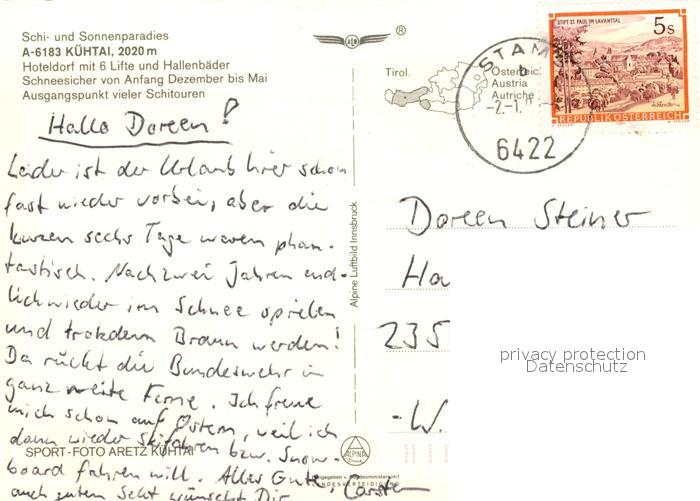 Schi- und Sonnenparadies
A-6183 KÜHTAI, 2020 m
Hoteldorf mit 6 Lifte und Hallenbäder
Schneesicher von Anfang Dezember bis Mai
Ausgangspunkt vieler Schitouren
Hallo Doreen!
Leider ist der Urlaub hier schon
fast wieder vorbei, aber die
kurzen sechs Tage waren phan-
tastisch. Nach zwei Jahren end-
lich wieder im Schnee spielen
und trotzdem Braun werden!
Da rückt die Bundeswehr in
ganz weite Ferne. Ich freue
mich schon auf Ostern, weil ich
dann wieder Skifahren bzw. Snow-
board fahren will. Alles Gute,
auch zum Sekt wünscht Dir Carsten
SPORT-FOTO ARETZ KÜHTAI
Alpine Luftbild Innsbruck
ALPINE
Tirol.
Österreic
Austria
Autriche
STAM
b
-2.-1.
6422
STIFT ST. PAUL IM LAVANTTAL
5s
REPUBLIK ÖSTERREICH
Doreen Steiner
Ha
235
-W.
privacy protection
Datenschutz